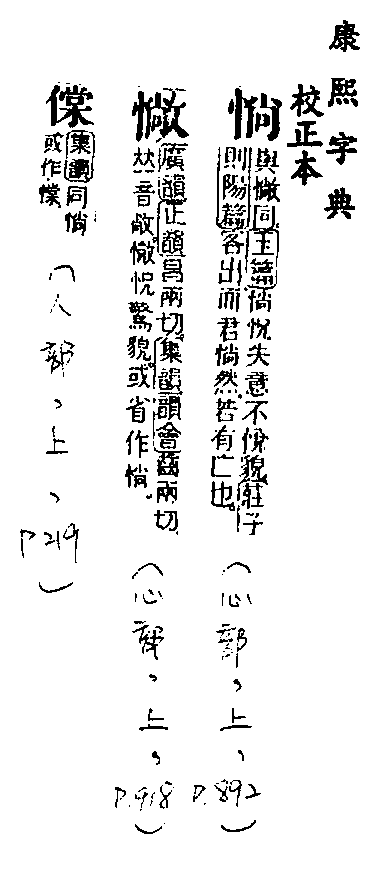 康熙字典
校正本
惝
與𢠵同玉篇惝怳失意不悅貌莊子
則陽篇客出而君惝然若有亡也。
(心部,上,P.892)
𢠵
廣韻正韻昌兩切集韻韻會齒兩切
𠀤音敞𢠵怳驚貌或省作惝。
(心部,上,P.918)
集韻同惝
或作
(人部,上,P.219)